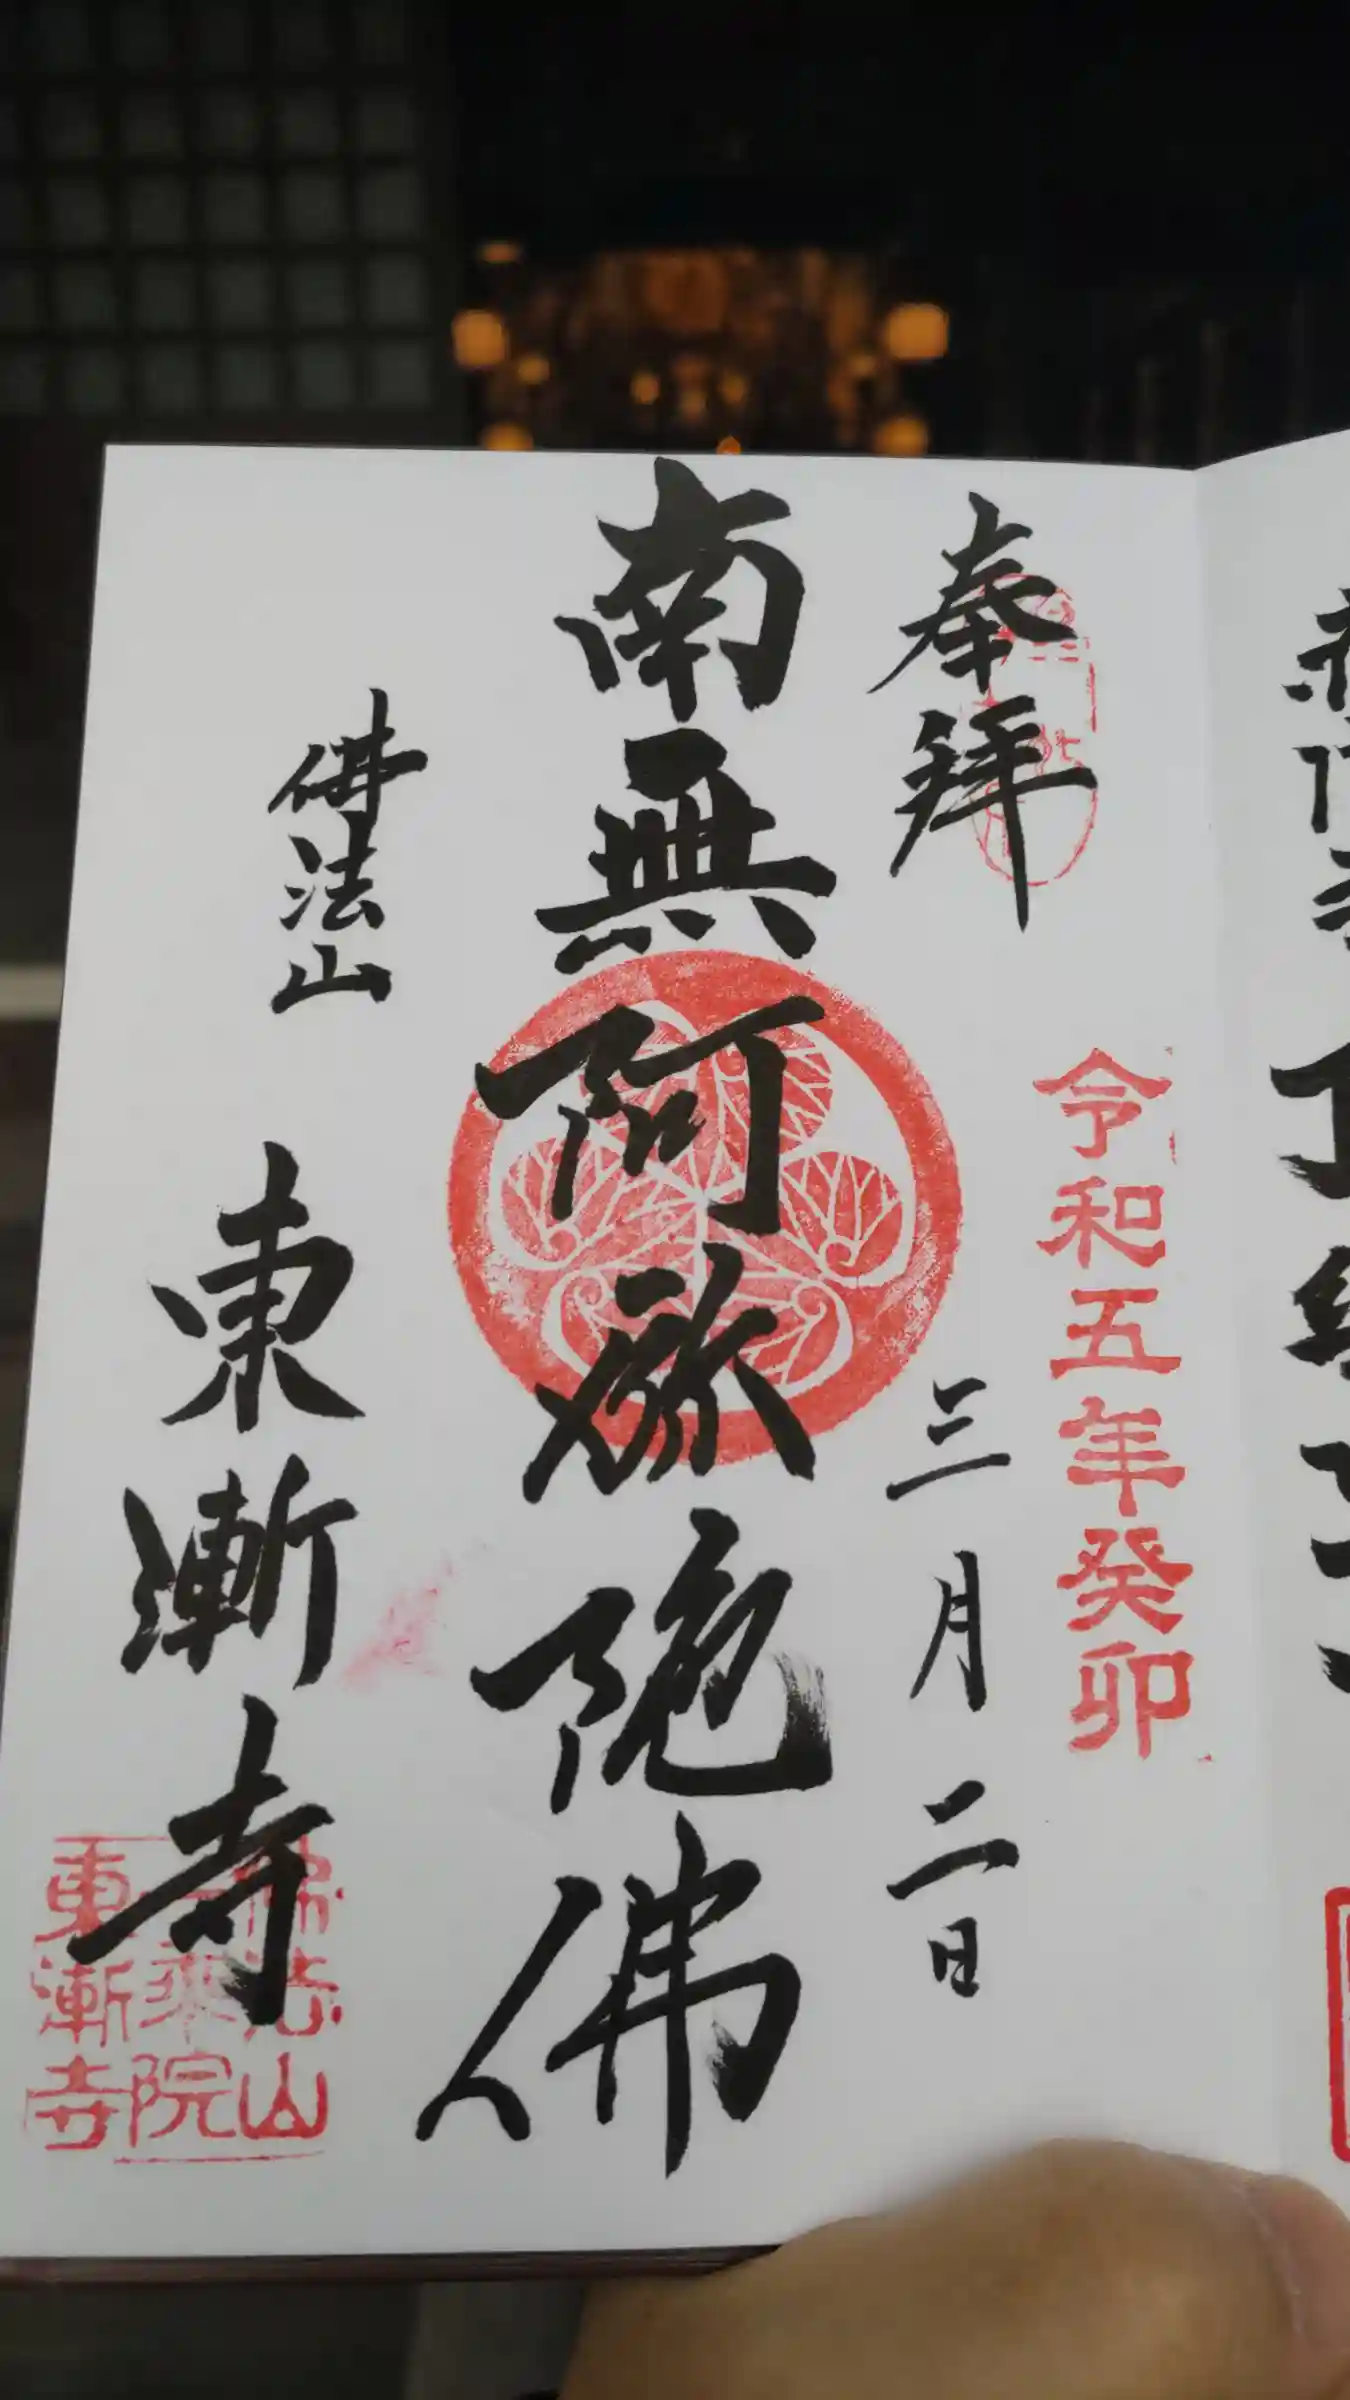 奉拝
令和五年癸卯
三月二日
南無阿弥陀佛
佛法山
東漸寺
佛法山
一乗院
東漸寺